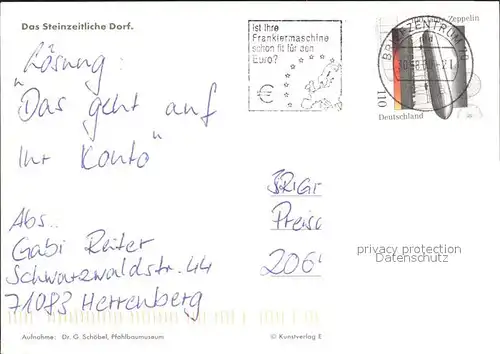 Das Steinzeitliche Dorf.
Ist Ihre
Frankiermaschine
schon fit für den
Euro?
€
Zeppelin
BRIEFZENTRUM 70
110
Deutschland
Lösung:
"Das geht auf
Ihr Konto"
Abs..
Gabi Reiter
Schwarzwaldstr. 44
71083 Herrenberg
Preis
206
privacy protection
Datenschutz
Aufnahme: Dr. G. Schöbel, Pfahlbaumuseum
© Kunstverlag E